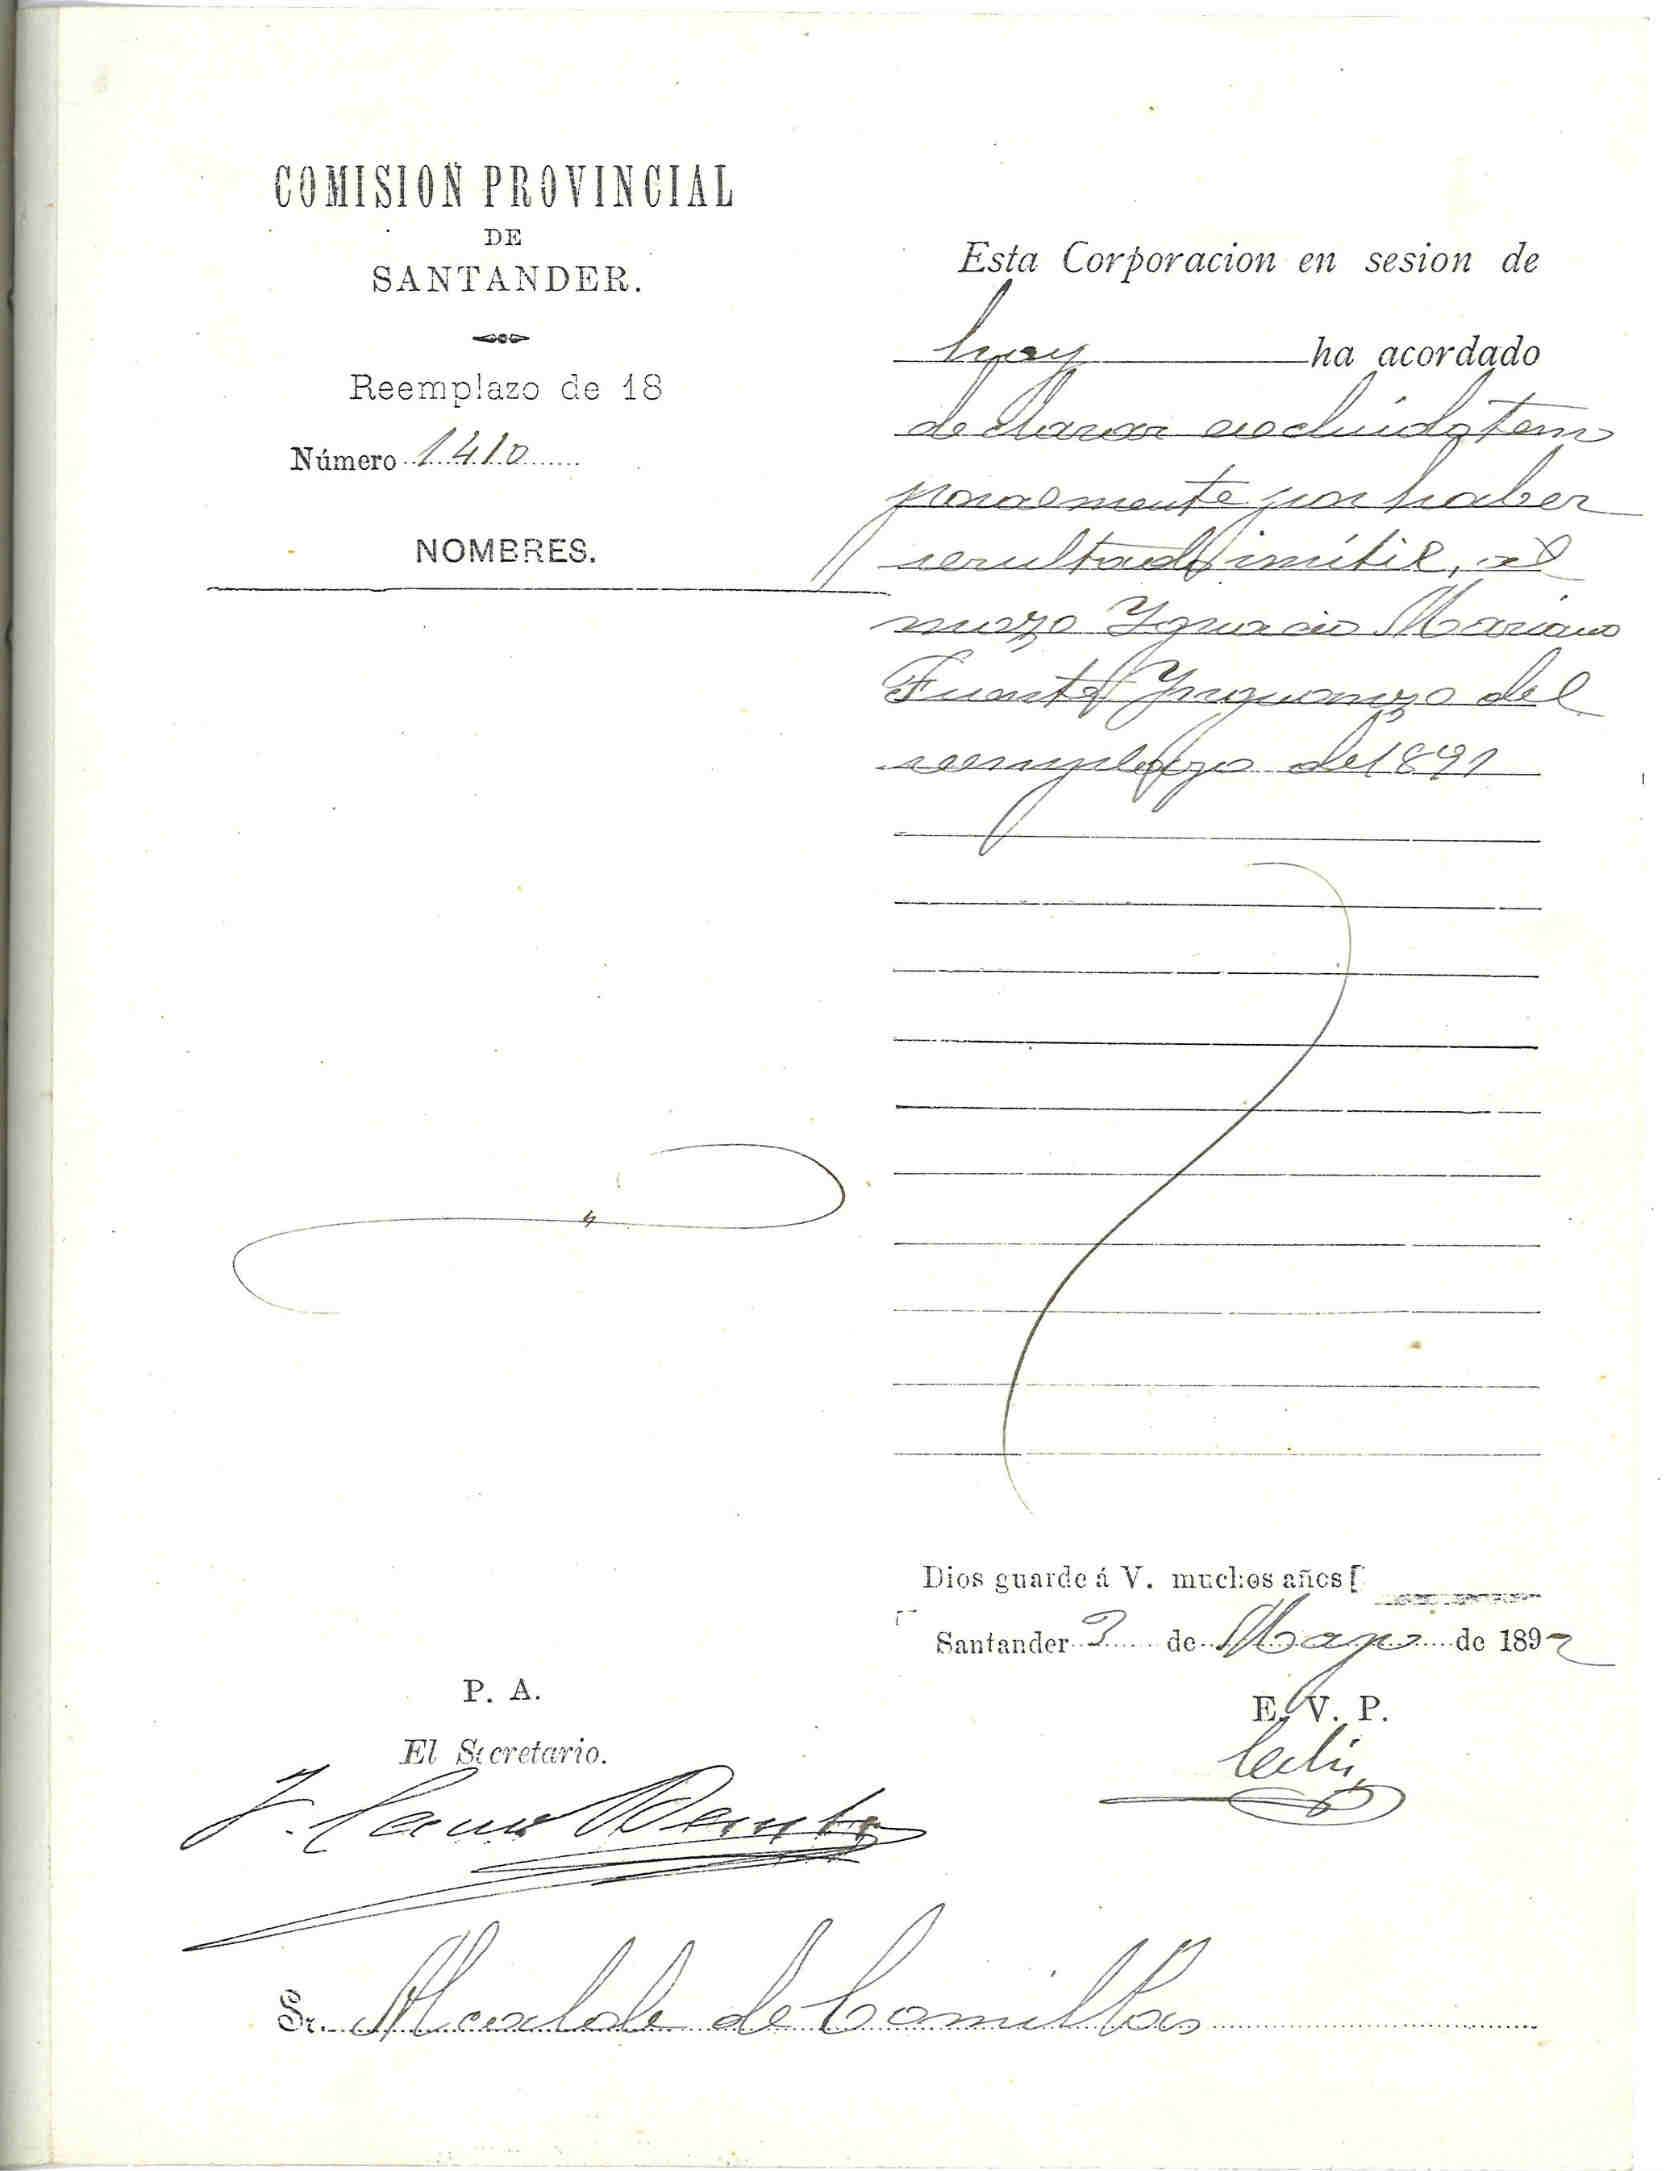 COMISION PROVINCIAL
DE
SANTANDER.
Reemplazo de 18
Número 1410
NOMBRES.
Esta Corporacion en sesion de
hoy ha acordado
declarar excluido tem
poralmente por haber
resultado inútil, al
mozo Ygnacio Mariano
Fuente Ynguanzo del
reemplazo de 1891
Dios guarde á V. muchos años
Santander 3 de Mayo de 1892
P. A.
El Secretario.
E. V. P.
Sr. Alcalde de Comillas